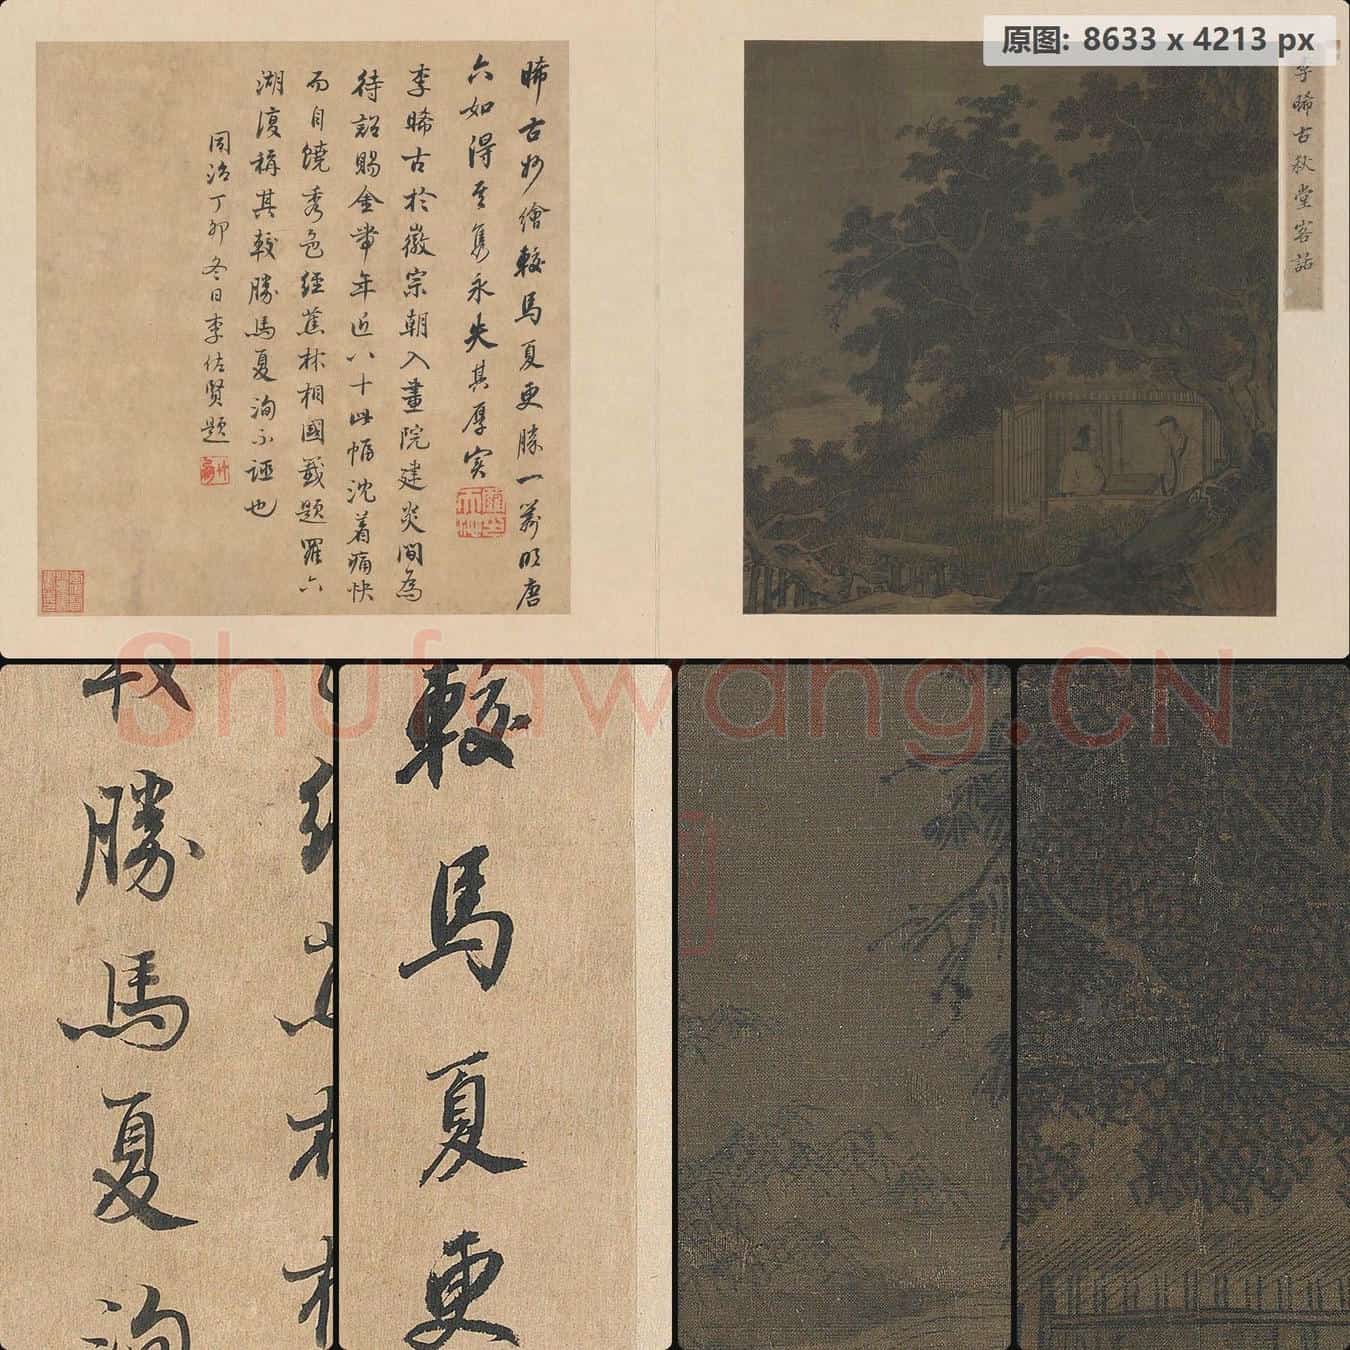 原图: 8633 x 4213 px
李晞古秋堂客話
晞古妙繪較馬夏更勝一籌明唐
六如得其雋永失其厚實
李晞古於徽宗朝入畫院建炎間為
待詔賜金帶年近八十此幅沈着痛快
而自饒秀色經蕉林相國籤題羅六
湖復稱其較勝馬夏洵不誣也
同治丁卯冬日李佐賢題
Shufawang.CN
勝馬夏洵
較馬夏更